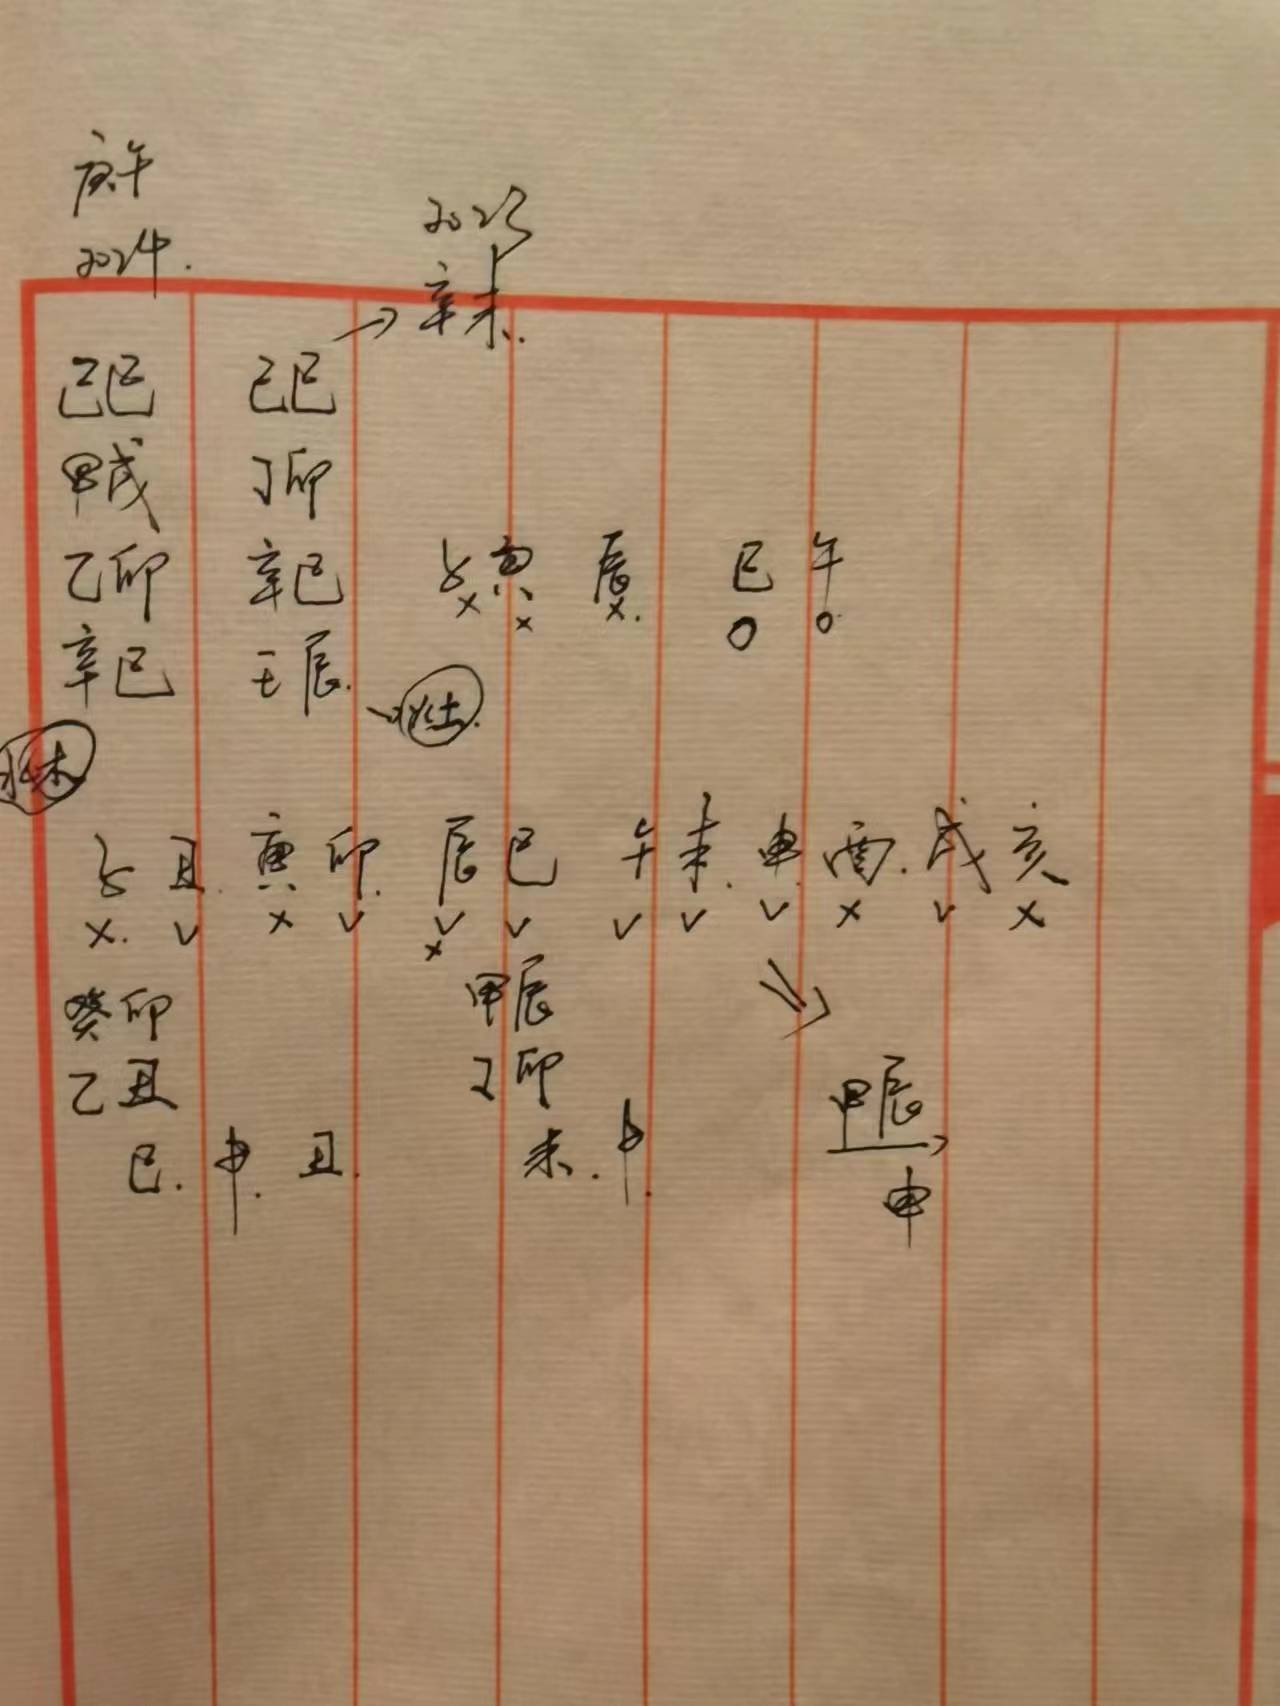 庚午
2024.
2023
→辛未.
己巳 己巳
甲戌 丁卯
乙卯 辛巳 子 寅 辰 巳 午
× × ×. O O
辛巳 壬辰.
水土.
水木
子 丑. 寅 卯. 辰 巳 午 未. 申. 酉. 戌 亥
×. v × v v v v v v × v ×
×
癸卯 甲辰
乙丑 丁卯 甲辰
巳. 申. 丑. 未. 申.
申